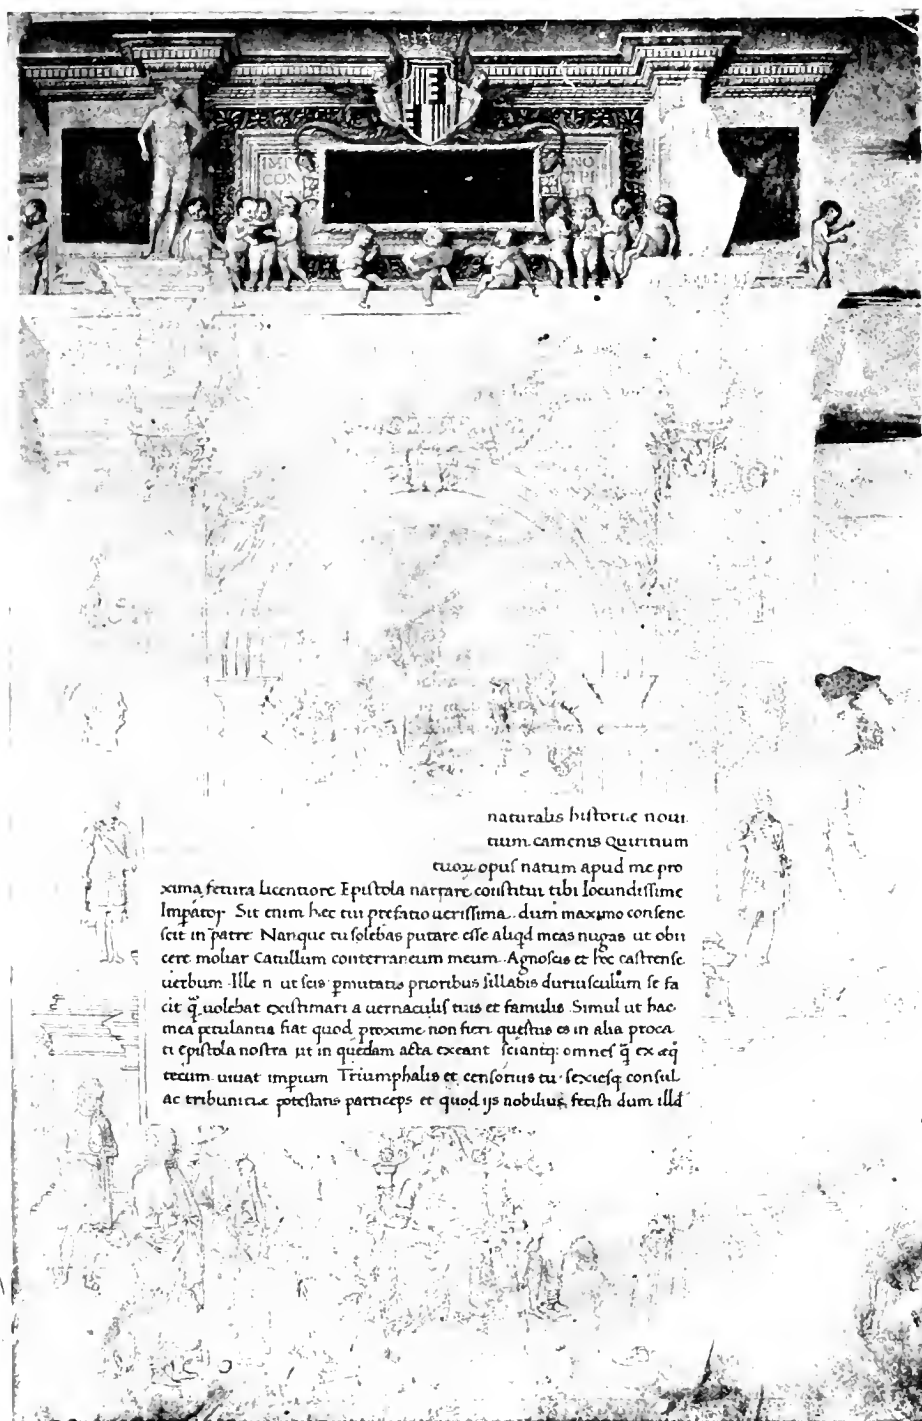 naturalis historiæ noui
tium camenis Quiritium
tuoꝝ opus natum apud me pro
xima fetura licentiore Epistola narrare constitui tibi Iocundissime
Imꝑator Sit enim hæc tui prefatio uerissima. dum maximo consene
scit in patre Nanque tu solebas putare esse aliqd meas nugas ut obii
cere moliar Catullum conterraneum meum. Agnoscis et hoc castrense
uerbum. Ille n ut scis ꝑmutatis prioribus sillabis duriusculum se fa
cit q̃ uolebat existimari a uernaculis tuis et famulis. Simul ut hac
mea petulantia fiat quod proxime non fieri questus es in alia proca
ci epistola nostra ut in quedam acta exeant sciantq; omnes q̃ ex æq̃
tecum uiuat imꝑium Triumphalis et censorius tu sexiesq consul
ac tribunitiæ potestatis particeps et quod ijs nobilius fecisti dum illd